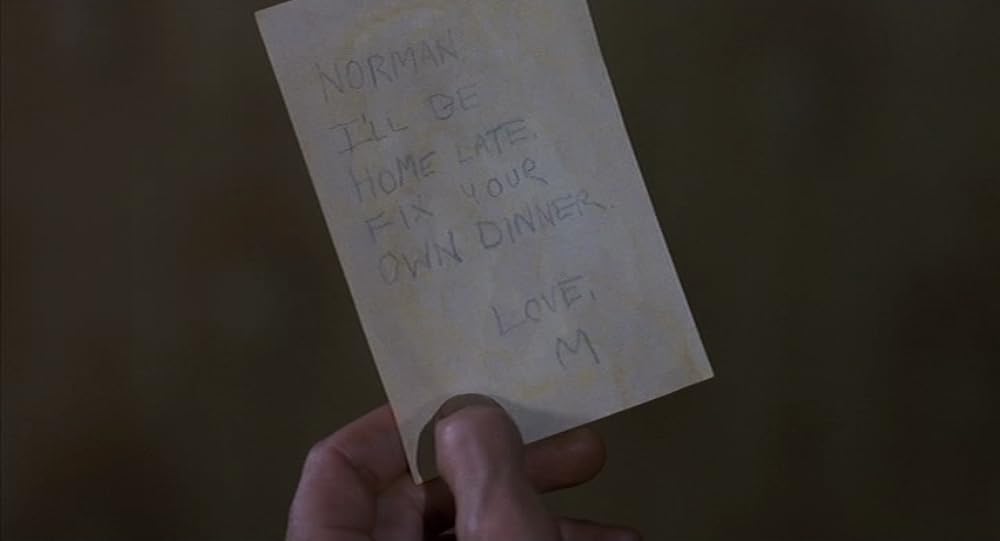 NORMAN.
I'LL BE
HOME LATE.
FIX YOUR
OWN DINNER.
LOVE,
M